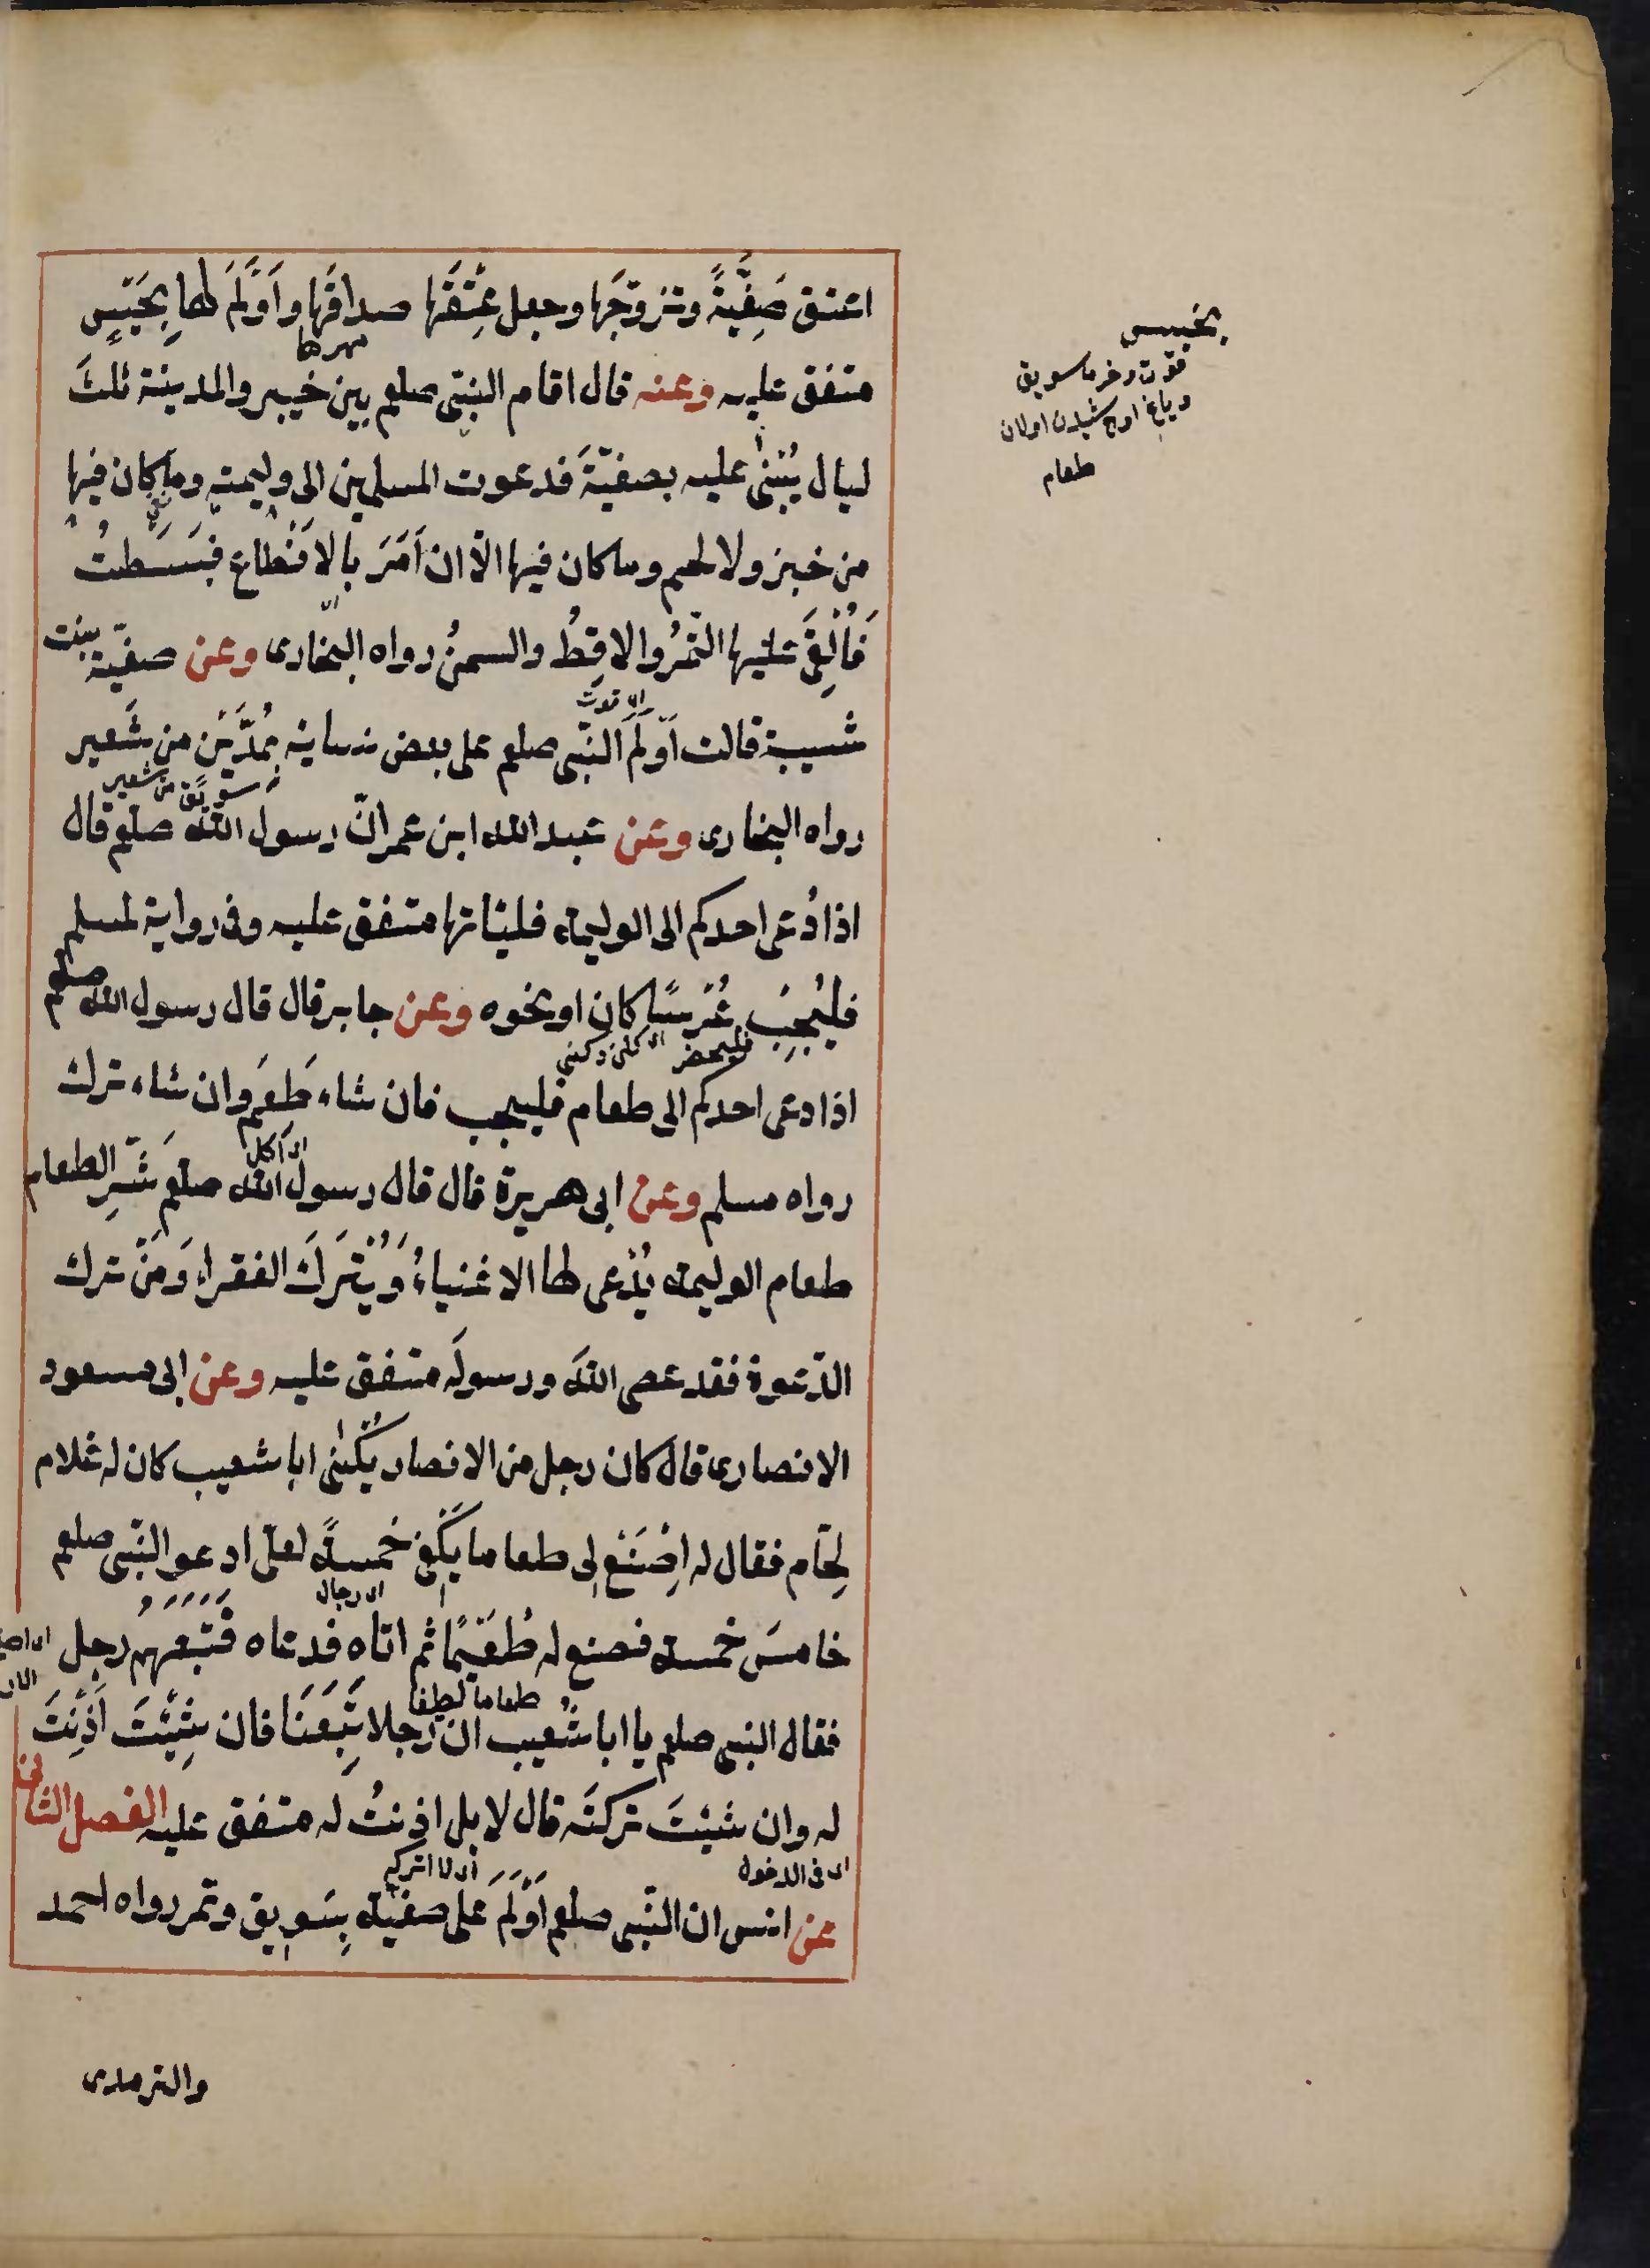 اعتق صَفِيَّةً وتزوّجَها وجعل عِتْقَها صداقَها واَوْلَمَ لها بِحَيْسٍ
مهرها
متفق عليه وعنه قال اقام النبىّ صلعم بين خيبر والمدينة ثلثَ
ليال يُبْنىٰ عليه بصفيّةَ فدعوت المسلمين الى وليمته وما كان فيها
من خبز ولا لحم وما كان فيها الّا ان اَمَرَ بالانْطاع فبَسَطتُ
فاُلْقِىَ عليها التّمرُ والاقِطُ والسمنُ رواه البخارى وعن صفيّة بنت
شيبة قالت اَوْلَمَ النّبى صلعم على بعض نسائه بمُدَّيْنِ من شَعير
سويق من شعير
رواه البخارى وعن عبد الله ابن عمر انّ رسول الله صلعم قال
اذا دُعى احدكم الى الوليمة فلياتها متفق عليه وفى رواية لمسلم
فليُجِبْ عُرْسًا كان او نحوه وعن جابر قال قال رسول الله صلعم
فليحضر
اذا دعى احدكم الى طعام فليجب فان شاء طَعِمَ وان شاء ترك
اى اكل
رواه مسلم وعن ابى هريرة قال قال رسول الله صلعم شَرّ الطعام
طعام الوليمة يُدْعى لها الاغنياءُ وَيُتْرَكَ الفقراء وَمَنْ ترك
الدّعوة فقد عصى الله ورسولَه متفق عليه وعن ابى مسعود
الانصارى قال كان رجل من الانصار يُكْنىٰ ابا شعيب كان له غلام
لحّام فقال له اِصْنَعْ لى طعاما يَكْفى خمسةً لعلّى ادعو النّبى صلعم
اى رجال
خامسَ خمسة فصنع له طُعَيِّمًا ثم اتاه فدعاه فتَبِعَهُم رجل
طعاما لطيفا
فقال النبى صلعم يا ابا شُعيب ان رجلا تَبِعَنَا فان شِئْتَ اَذِنْتَ
له وان شئتَ تركتَه قال لا بل اذنتُ له متفق عليه الفصل الثانى
اى فى الدخول
اى لا اتركه
عن انس ان النّبى صلعم اَوْلَمَ على صفيّة بِسَويق وتمر رواه احمد
والترمذى
بحيس
قوت وخرما سويق
وياغ اوچ شيدن اولان
طعام